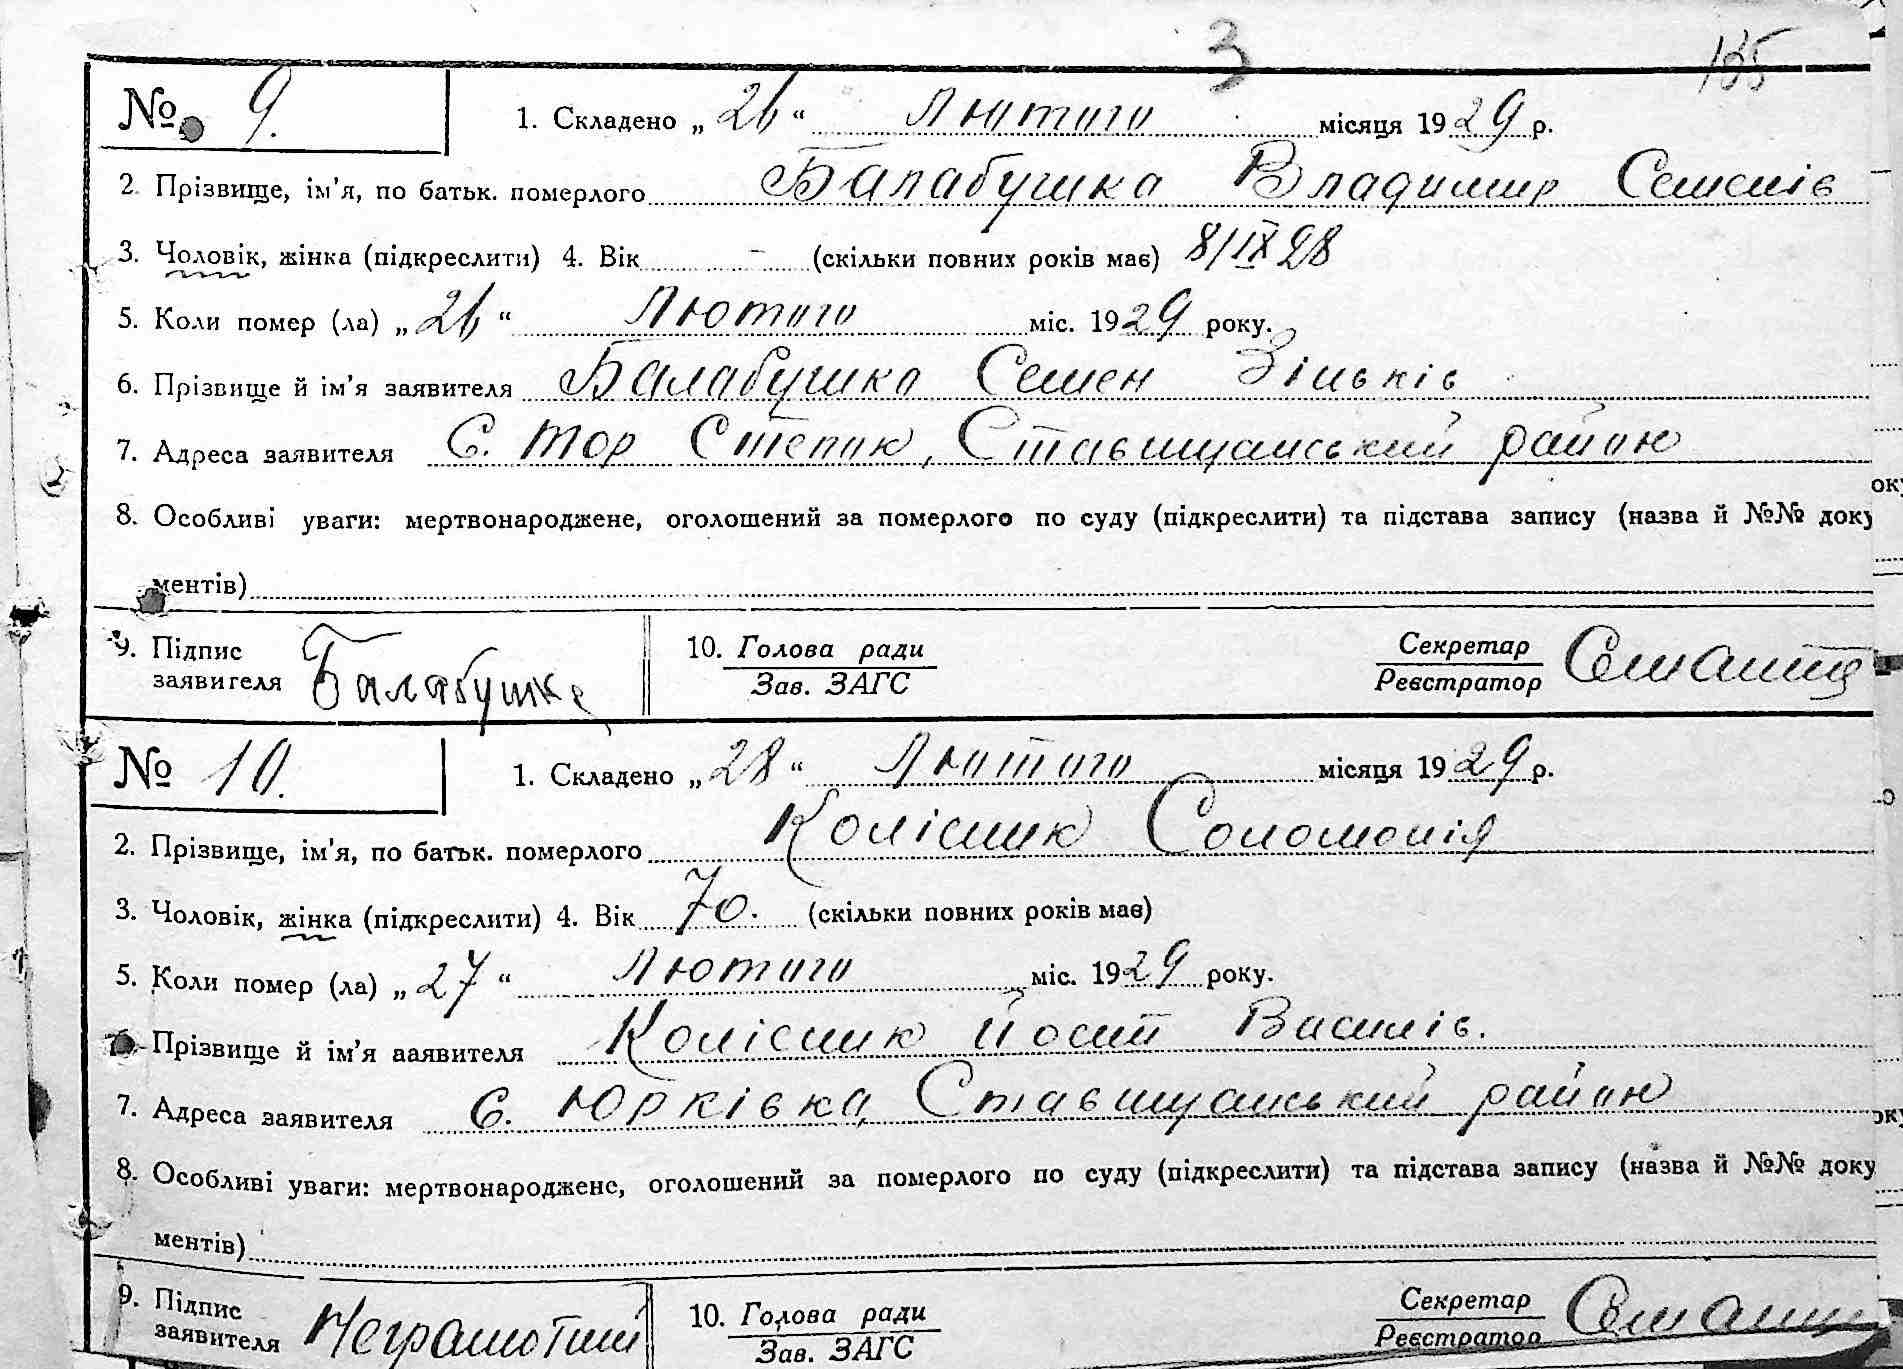 3 135
№ 9. 1. Складено „26“ Лютого місяця 1929 р.
2. Прізвище, ім'я, по батьк. померлого Балабушка Владимир Семенів
3. Чоловік, жінка (підкреслити) 4. Вік - (скільки повних років має) 8/IX 28
5. Коли помер (ла) „26“ Лютого міс. 1929 року.
6. Прізвище й ім'я заявителя Балабушка Семен Зіньків
7. Адреса заявителя С. Тор Степок, Ставищанський район
8. Особливі уваги: мертвонароджене, оголошений за померлого по суду (підкреслити) та підстава запису (назва й №№ доку
ментів)
9. Підпис заявителя Балабушка 10. Голова ради Зав. ЗАГС Секретар Реєстратор
№ 10. 1. Складено „28“ Лютого місяця 1929 р.
2. Прізвище, ім'я, по батьк. померлого Колісник Соломонія
3. Чоловік, жінка (підкреслити) 4. Вік 70. (скільки повних років має)
5. Коли помер (ла) „27“ Лютого міс. 1929 року.
Прізвище й ім'я заявителя Колісник Йосип Василів.
7. Адреса заявителя С. Юрківка, Ставищанський район
8. Особливі уваги: мертвонароджене, оголошений за померлого по суду (підкреслити) та підстава запису (назва й №№ доку
ментів)
9. Підпис заявителя Неграмотний 10. Голова ради Зав. ЗАГС Секретар Реєстратор